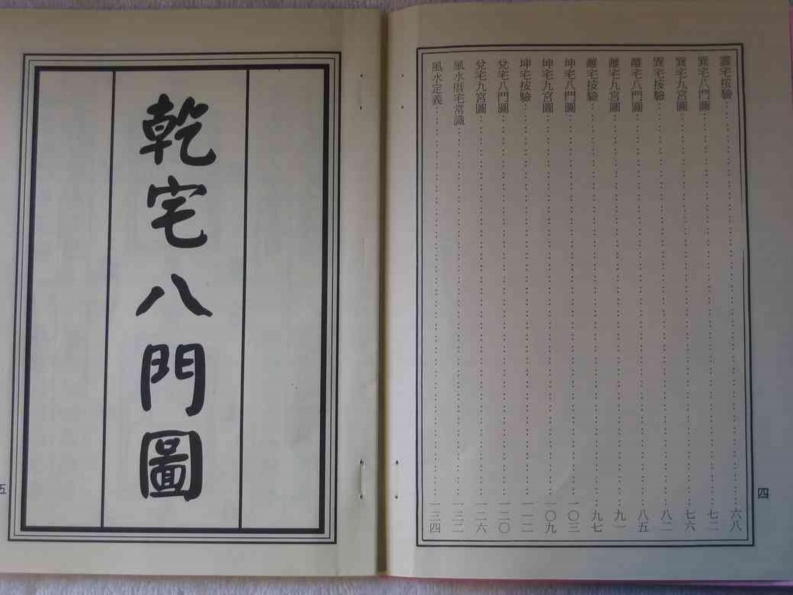 震宅按驗⋯⋯六八
巽宅八門圖⋯⋯七二
巽宅九宮圖⋯⋯七六
巽宅按驗⋯⋯八二
離宅八門圖⋯⋯八五
離宅九宮圖⋯⋯九一
離宅按驗⋯⋯九七
坤宅八門圖⋯⋯一〇三
坤宅九宮圖⋯⋯一〇九
坤宅按驗⋯⋯一一二
兌宅八門圖⋯⋯一二〇
兌宅九宮圖⋯⋯一二六
風水宅常識⋯⋯一三二
風水定義⋯⋯一三四
四
乾宅八門圖
五